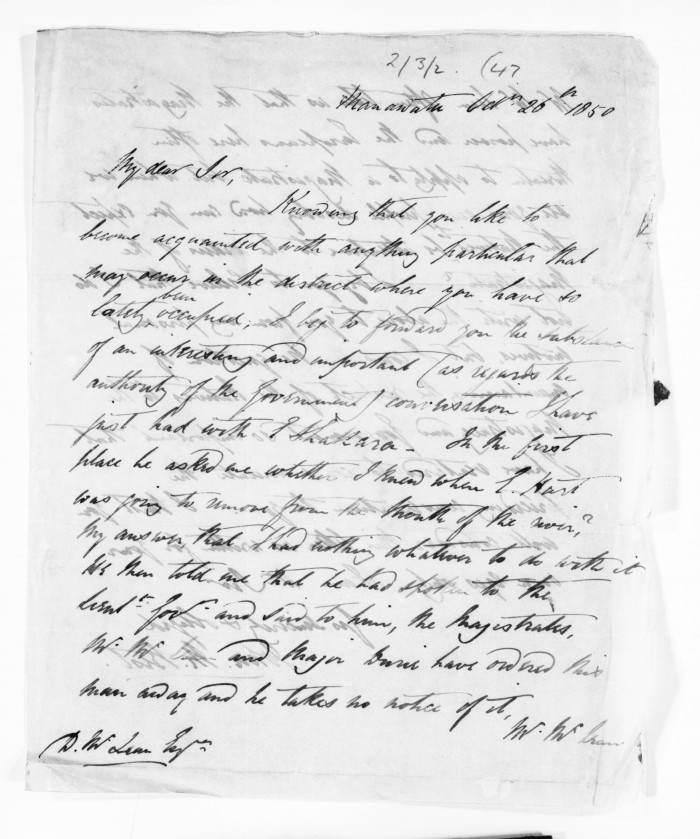 2/3/2. (47
Manawatu Octr 26th 1850
My dear Sir,
Knowing that you like to
become acquainted with anything particular that
may occur in the district where you have so
lately been occupied; I beg to forward you the substance
of an interesting and important (as regards the
authority of the Government) conversation I have
just had with E. - In the first
place he asked me whether I knew when E. Hart
was going to remove from the Mouth of the river,?
My answer that I had nothing whatever to do with it
He then told me that he had spoken to the
Lieutt Govr and said to him, the Magistrates,
Mr Mc - and Major Durie have ordered this
man away and he takes no notice of it,
Mr. McLean
D. McLean Esqre